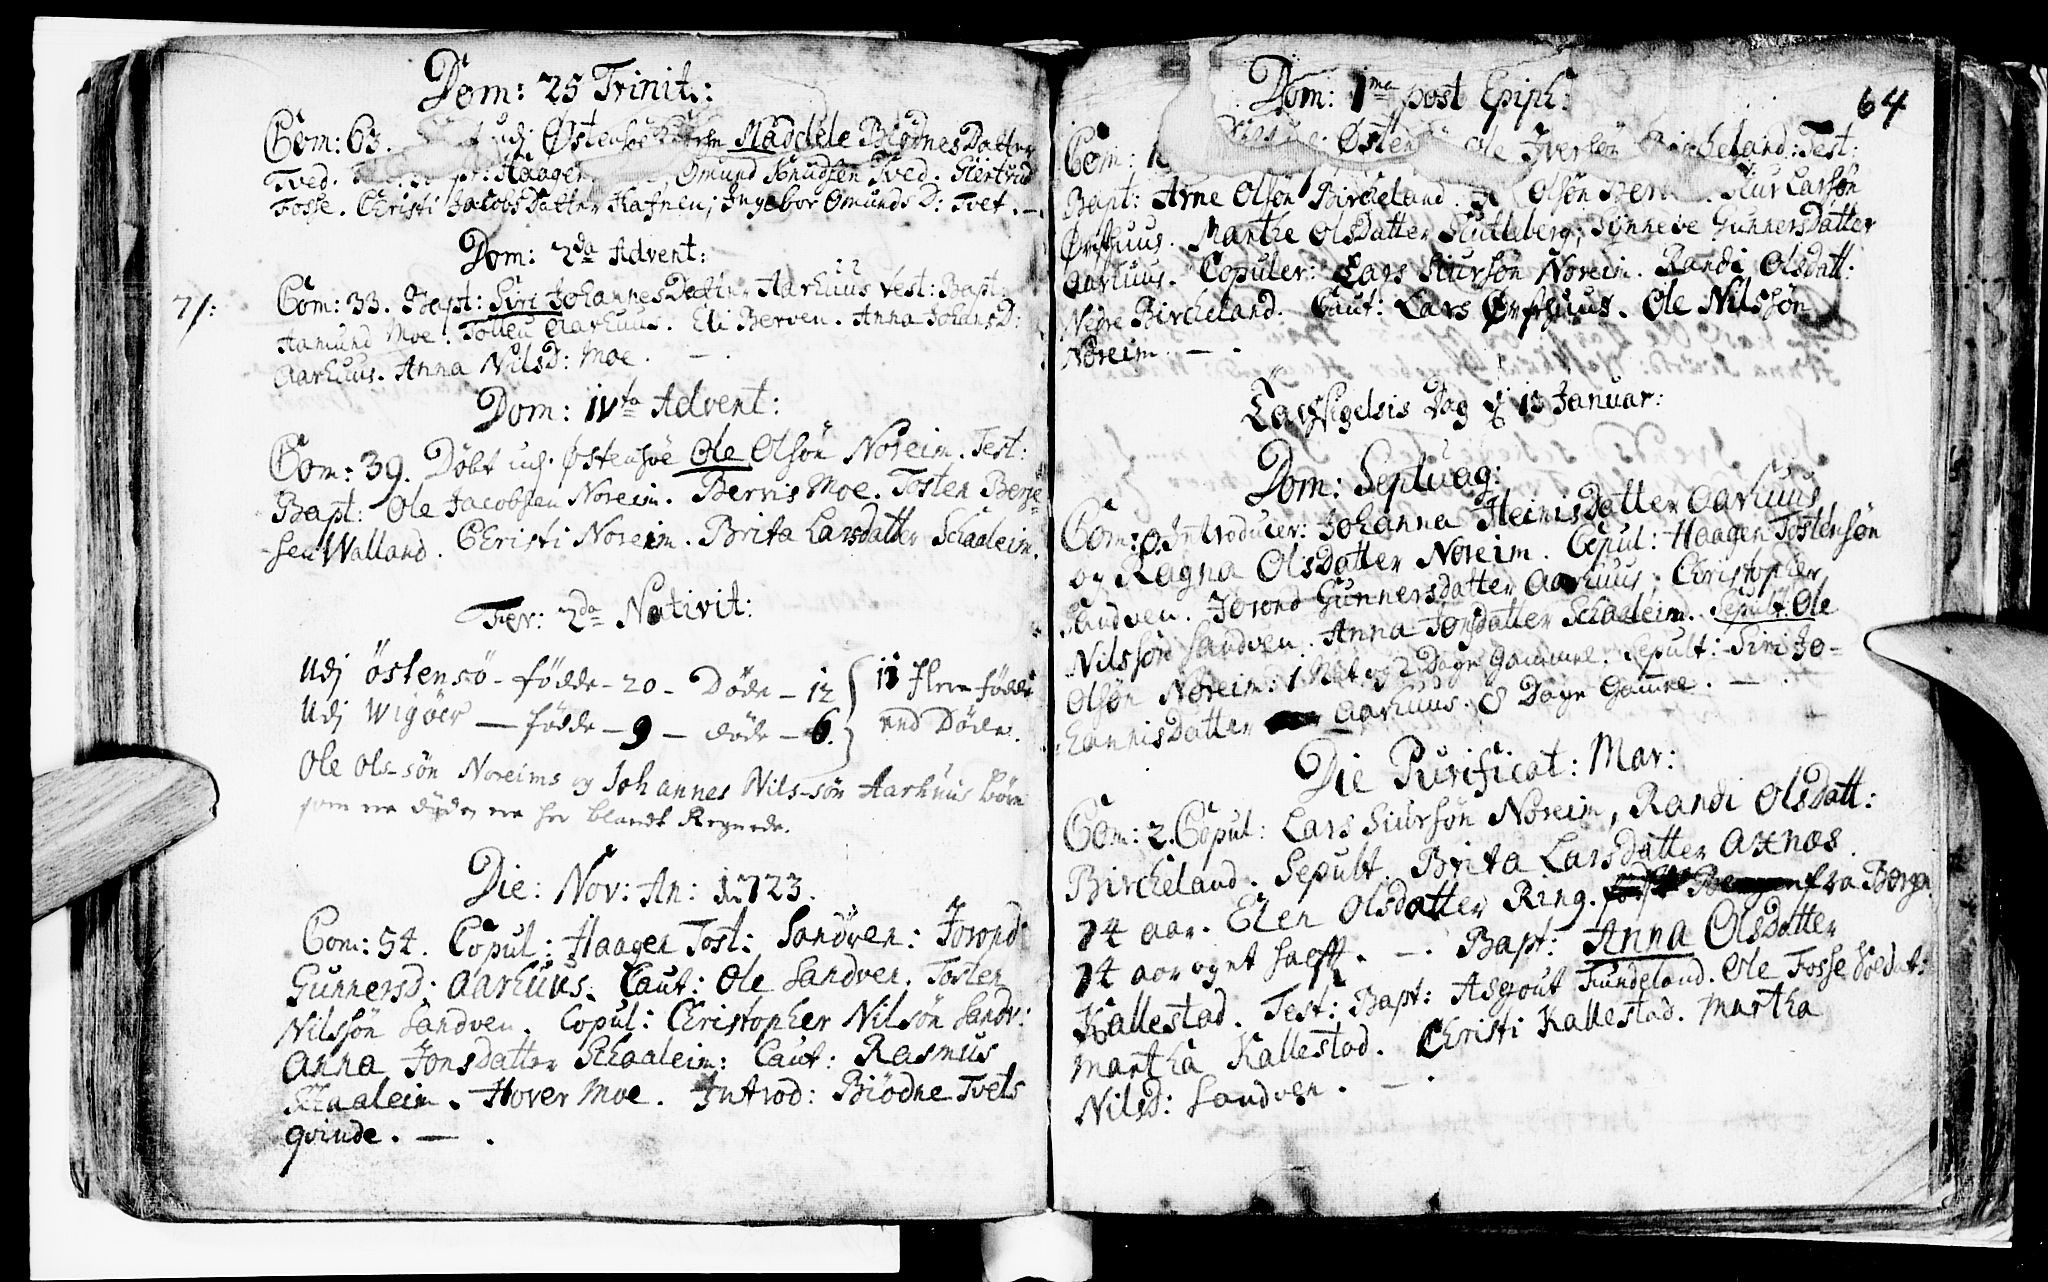 Dom: 25 Trinit.:
Com: 63. udj Østensøe Maddele Biødnes Datter
Tved. Haagen Omund Knudsen Tved. Giertrud
Fosse. Christi JacobsDatter Kafneu; Ingebor Omunds D: Tvet. —
Dom: 2da Advent:
7/: Com: 33. Bapt: Siri JohannesDatter Aarhuus test: Bapt:
Aamund Moe. Tolleu Aarhuus. Eli Berven. Anna JohansD:
Aarhuus. Anna NilsD: Moe. — .
Dom: IVta Advent:
Com: 39. Døbt udj Østensøe Ole Olsön Noreim. Test:
Bapt: Ole Jacobsen Noreim. Berris Moe. Tosten Berje=
=sen Walland. Christi Noreim. Brita Larsdatter Schaaleim.
Fer: 2da Nativit:
Udj östensö - födde - 20 - Døde - 12 } 11 flere födde
Udj Wigöer — födde - 9 — døde - 6. } end Döde.
Ole Ols-sön Noreims og Johannes Nils-sön Aarhuus börn
som ere döde, ere her blandt Regnede.
Die: Nov: An: 1723.
Com: 54. Copul: Haagen Tost: Sandven: Jorond
Gunnersd: Aarhuus. Caut: Ole Sandven. Tosten
Nilssön Sandven. Copul: Christopher Nilsön Sandv:
Anna Jonsdatter Schaaleim: Caut: Rasmus
Schaaleim. Hover Moe. Introd: Biödne Tvets
qvinde. — .
64
Dom: 1ma post Epiph:
Com: Østen Ole Iversön Bircheland: Test:
Bapt: Arne Olsön Bircheland. Olsön Siur Larsön
Ørshuus. Marthe OlsDatter Skutleberg; Synneve GunnersDatter
Aarhuus. Copuler: Lars Siursön Noreim. Randi Olsdatt:
Nedre Bircheland. Caut: Lars Ørshuus. Ole Nilssön
Noreim. — .
Lavhgelsis Dag d 13 Januar:
Dom: Septuag:
Com: 0. Introducer: Johanna HeinisDatter Aarhuus
og Ragna OlsDatter Noreim. Copul: Haagen Tostensön
Sandven. Jorond Gunnersdatter Aarhuus; Christopher
Nilssön Sandven. Anna Jonsdatter Schaaleim. Sepult: Ole
Olsön Noreim: 1 Nat og 2 Dage Gammel. Sepult: Siri Jo=
=hannisDatter Aarhuus. 8 Dage Gamle. — .
Die Purificat: Mar:
Com: 2. Copul: Lars Siursön Noreim, Randi Olsdatt:
Bircheland. Sepult. Brita Larsdatter Axnæs.
74 aar. Elen Olsdatter Ring. fra Bergn
74 aar og et halft. — . Bapt: Anna Olsdatter
Kallestad. Test: Bapt: Asgout Tundeland. Ole Fosse Soldat:
Martha Kallestad. Christi Kallestad. Martha
Nilsd: Sandven. — .